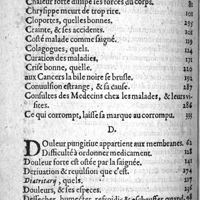 Chaleur forte dissipe les forces du corps. 81
Chrysippe meurt de trop rire.
Cloportes, quelles bonnes. 235
Crainte, & ses accidents.
Costé malade comme saigné. 119
Colagogues, quels.
Curation des maladies.
Crise bonne, quelle. 210
aux Cancers la bile noire se brusle. 192
Convulsion estrange, & sa cause. 287
Consultes des Medecins chez les malades, & leurs
sites. 286
Ce qui corrompt, laisse sa marque au corrompu. 335
D.
Douleur pungitive appartient aux membranes. 62
Difficulté à ordonner medicament. 128
Douleur forte est ostée par la saignée. 141
Derivation & revulsion que c'est. 231
quels.
Douleurs, & les especes. 236